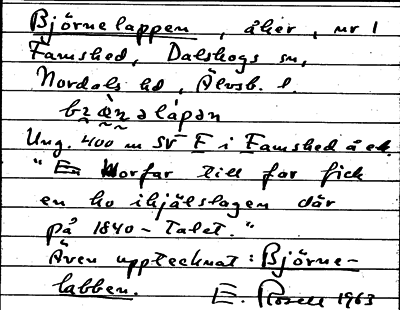 Björnelappen, åker, nr 1
Famshed, Dalskogs sn,
Nordals hd, Älvsb. l.
bzœ̀nalápan
Ung. 400 m SV F i Famshed å ek.
"En Morfar till far fick
en ko ihjälslagen där
på 1840-talet."
Även upptecknat: Björne-
labben. E. Rosell 1963